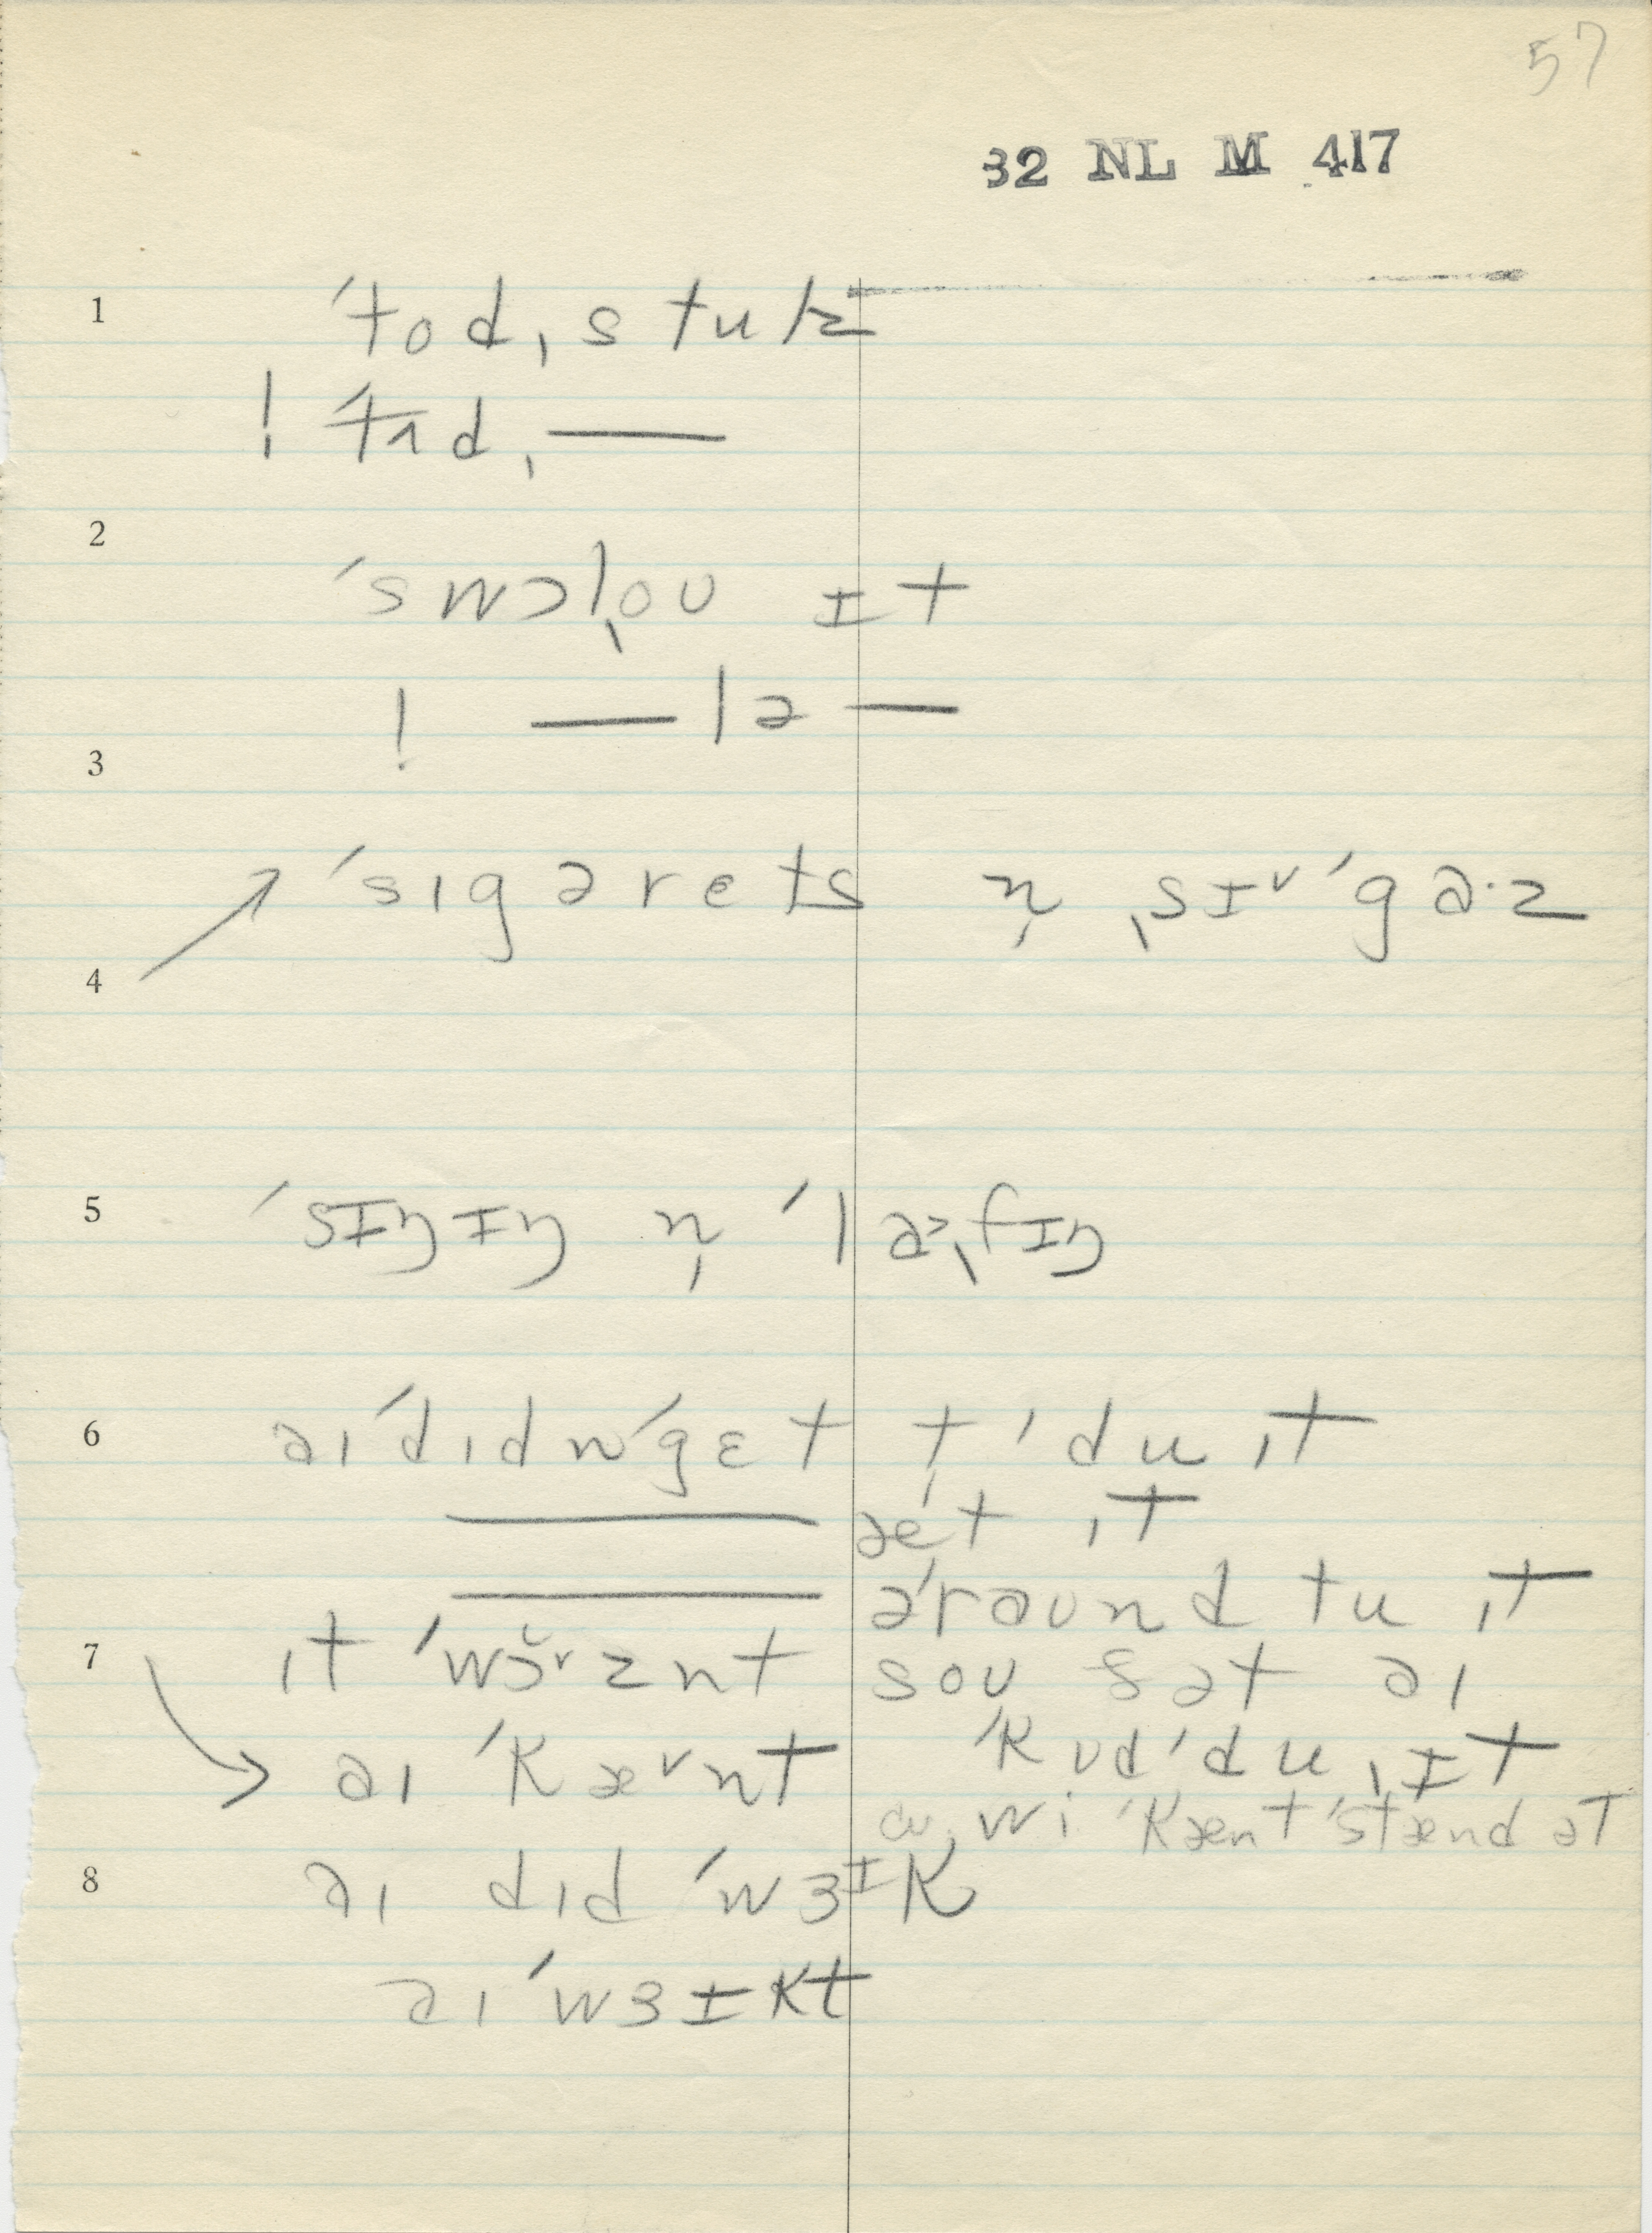 57
32 NL M 417
1 ˈtod,stulz
! ˈtɪɑd, —
2
ˈswɔlˌoʊ ɪt
! — lə —
3
ˈsɪgərets n̩ ˌsɪᵛˈgɑ·z
4
5 ˈsɪŋɪŋ n̩ ˈlɑ>ˌfɪŋ
6 aɪ ˈdɪdn ˈgɛt t̩ ˈdu ɪt
— ˈæt ɪt
— əˈraʊnd tu ɪt
7 ɪt ˈwɔ̆ᵛznt soʊ ðət aɪ
aɪ ˈkæᵛnt ˈkʊd ˈdu ˌɪt
wi ˈkænt ˈstænd əT
8 aɪ dɪd ˈwɜɪk
aɪ ˈwɜɪkt